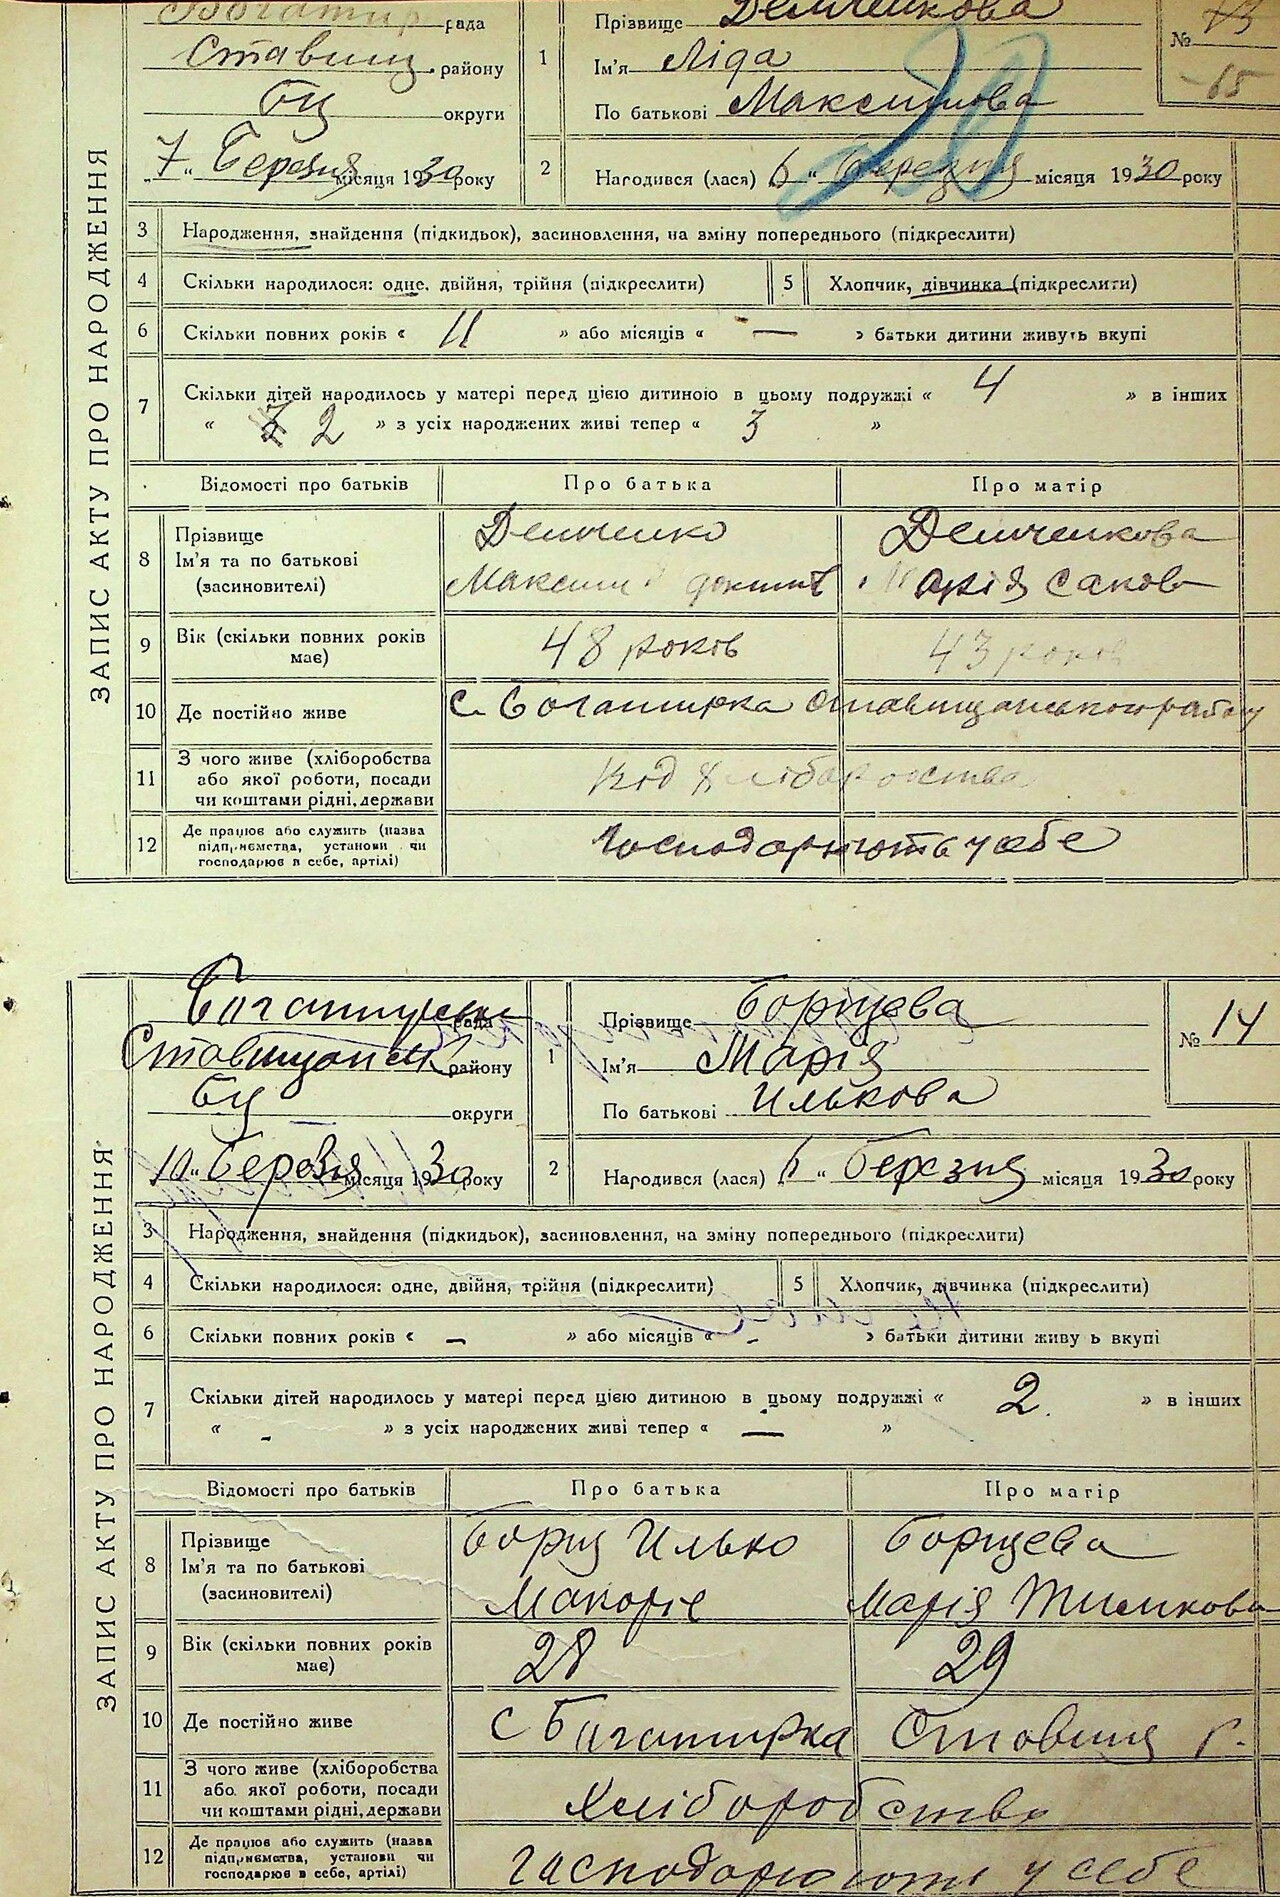 ЗАПИС АКТУ ПРО НАРОДЖЕННЯ
Богатир рада
Ставищ. району
Бц округи
„7„ Березня місяця 1930 року
1
Прізвище Демченкова
Ім'я Ліда
По батькові Максимова
№ 13
20
2
Народився (лася) 6 „ березня місяця 1930 року
3 Народження, знайдення (підкидьок), засиновлення, на зміну попереднього (підкреслити)
4 Скільки народилося: одне, двійня, трійня (підкреслити) 5 Хлопчик, дівчинка (підкреслити)
6 Скільки повних років « 11 » або місяців « — » батьки дитини живуть вкупі
7 Скільки дітей народилось у матері перед цією дитиною в цьому подружжі « 4 » в інших
« 2 » з усіх народжених живі тепер « 3 »
Відомості про батьків Про батька Про матір
8 Прізвище
Ім'я та по батькові
(засиновителі)
Демченко
Максим
Демченкова
Марія Саков
9 Вік (скільки повних років має) 48 років 43 років
10 Де постійно живе с. Богатирка Ставищанського району
11 З чого живе (хліборобства
або якої роботи, посади
чи коштами рідні, держави
від хліборобства
12 Де працює або служить (назва
підприємства, установи чи
господарює в себе, артілі)
Господарюють у себе
ЗАПИС АКТУ ПРО НАРОДЖЕННЯ
Богатирськ рада
Ставищанськ району
Бц округи
10„ Березня місяця 1930 року
1
Прізвище Борщева
Ім'я Марія
По батькові Илькова
№ 14
2
Народився (лася) 6 „ Березня місяця 1930 року
3 Народження, знайдення (підкидьок), засиновлення, на зміну попереднього (підкреслити)
4 Скільки народилося: одне, двійня, трійня (підкреслити) 5 Хлопчик, дівчинка (підкреслити)
6 Скільки повних років « – » або місяців « - » батьки дитини живу ь вкупі
7 Скільки дітей народилось у матері перед цією дитиною в цьому подружжі « 2. » в інших
« - » з усіх народжених живі тепер « — »
Відомості про батьків Про батька Про матір
8 Прізвище
Ім'я та по батькові
(засиновителі)
Борщ Илько
Макоріє
Борщева
Марія Тимкова
9 Вік (скільки повних років має) 28 29
10 Де постійно живе с Багатирка Ставищ р.
11 З чого живе (хліборобства
або якої роботи, посади
чи коштами рідні, держави
Хліборобство
12 Де працює або служить (назва
підприємства, установи чи
господарює в себе, артілі)
гасподарюють у себе